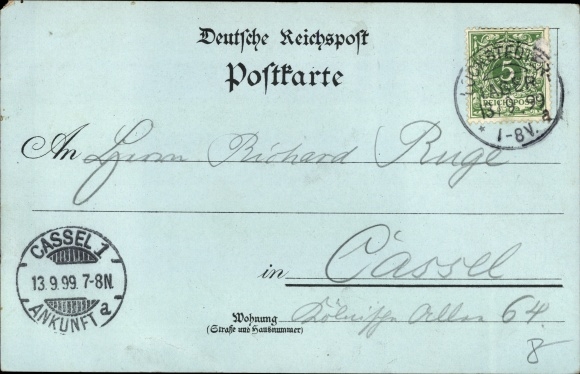 Deutsche Reichspost
Postkarte
5
REICHSPOST
LOCKSTEDTER
LAGER
13. 9. 99
* 1-8V. a
An Herrn Richard Ruge
CASSEL 1
13.9.99. 7-8N.
ANKUNFT a
in Cassel
Wohnung Kölnische Allee 64.
(Straße und Hausnummer)